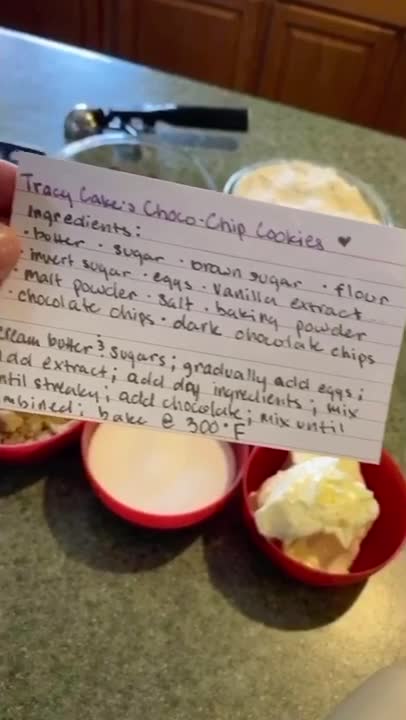 Tracy Cake's Choco-Chip Cookies ♥
Ingredients:
· butter · sugar · brown sugar · flour
· invert sugar · eggs · vanilla extract
· malt powder · salt · baking powder
· chocolate chips · dark chocolate chips
cream butter & sugars; gradually add eggs;
add extract; add dry ingredients; mix
until streaky; add chocolate; mix until
combined; bake @ 300°F